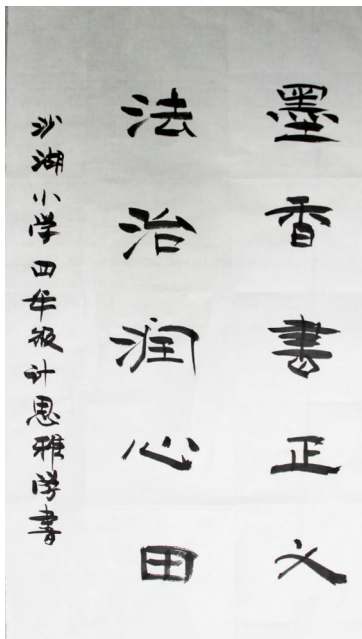 墨香書正义
法治润心田
沙湖小学四年级计思雅学書